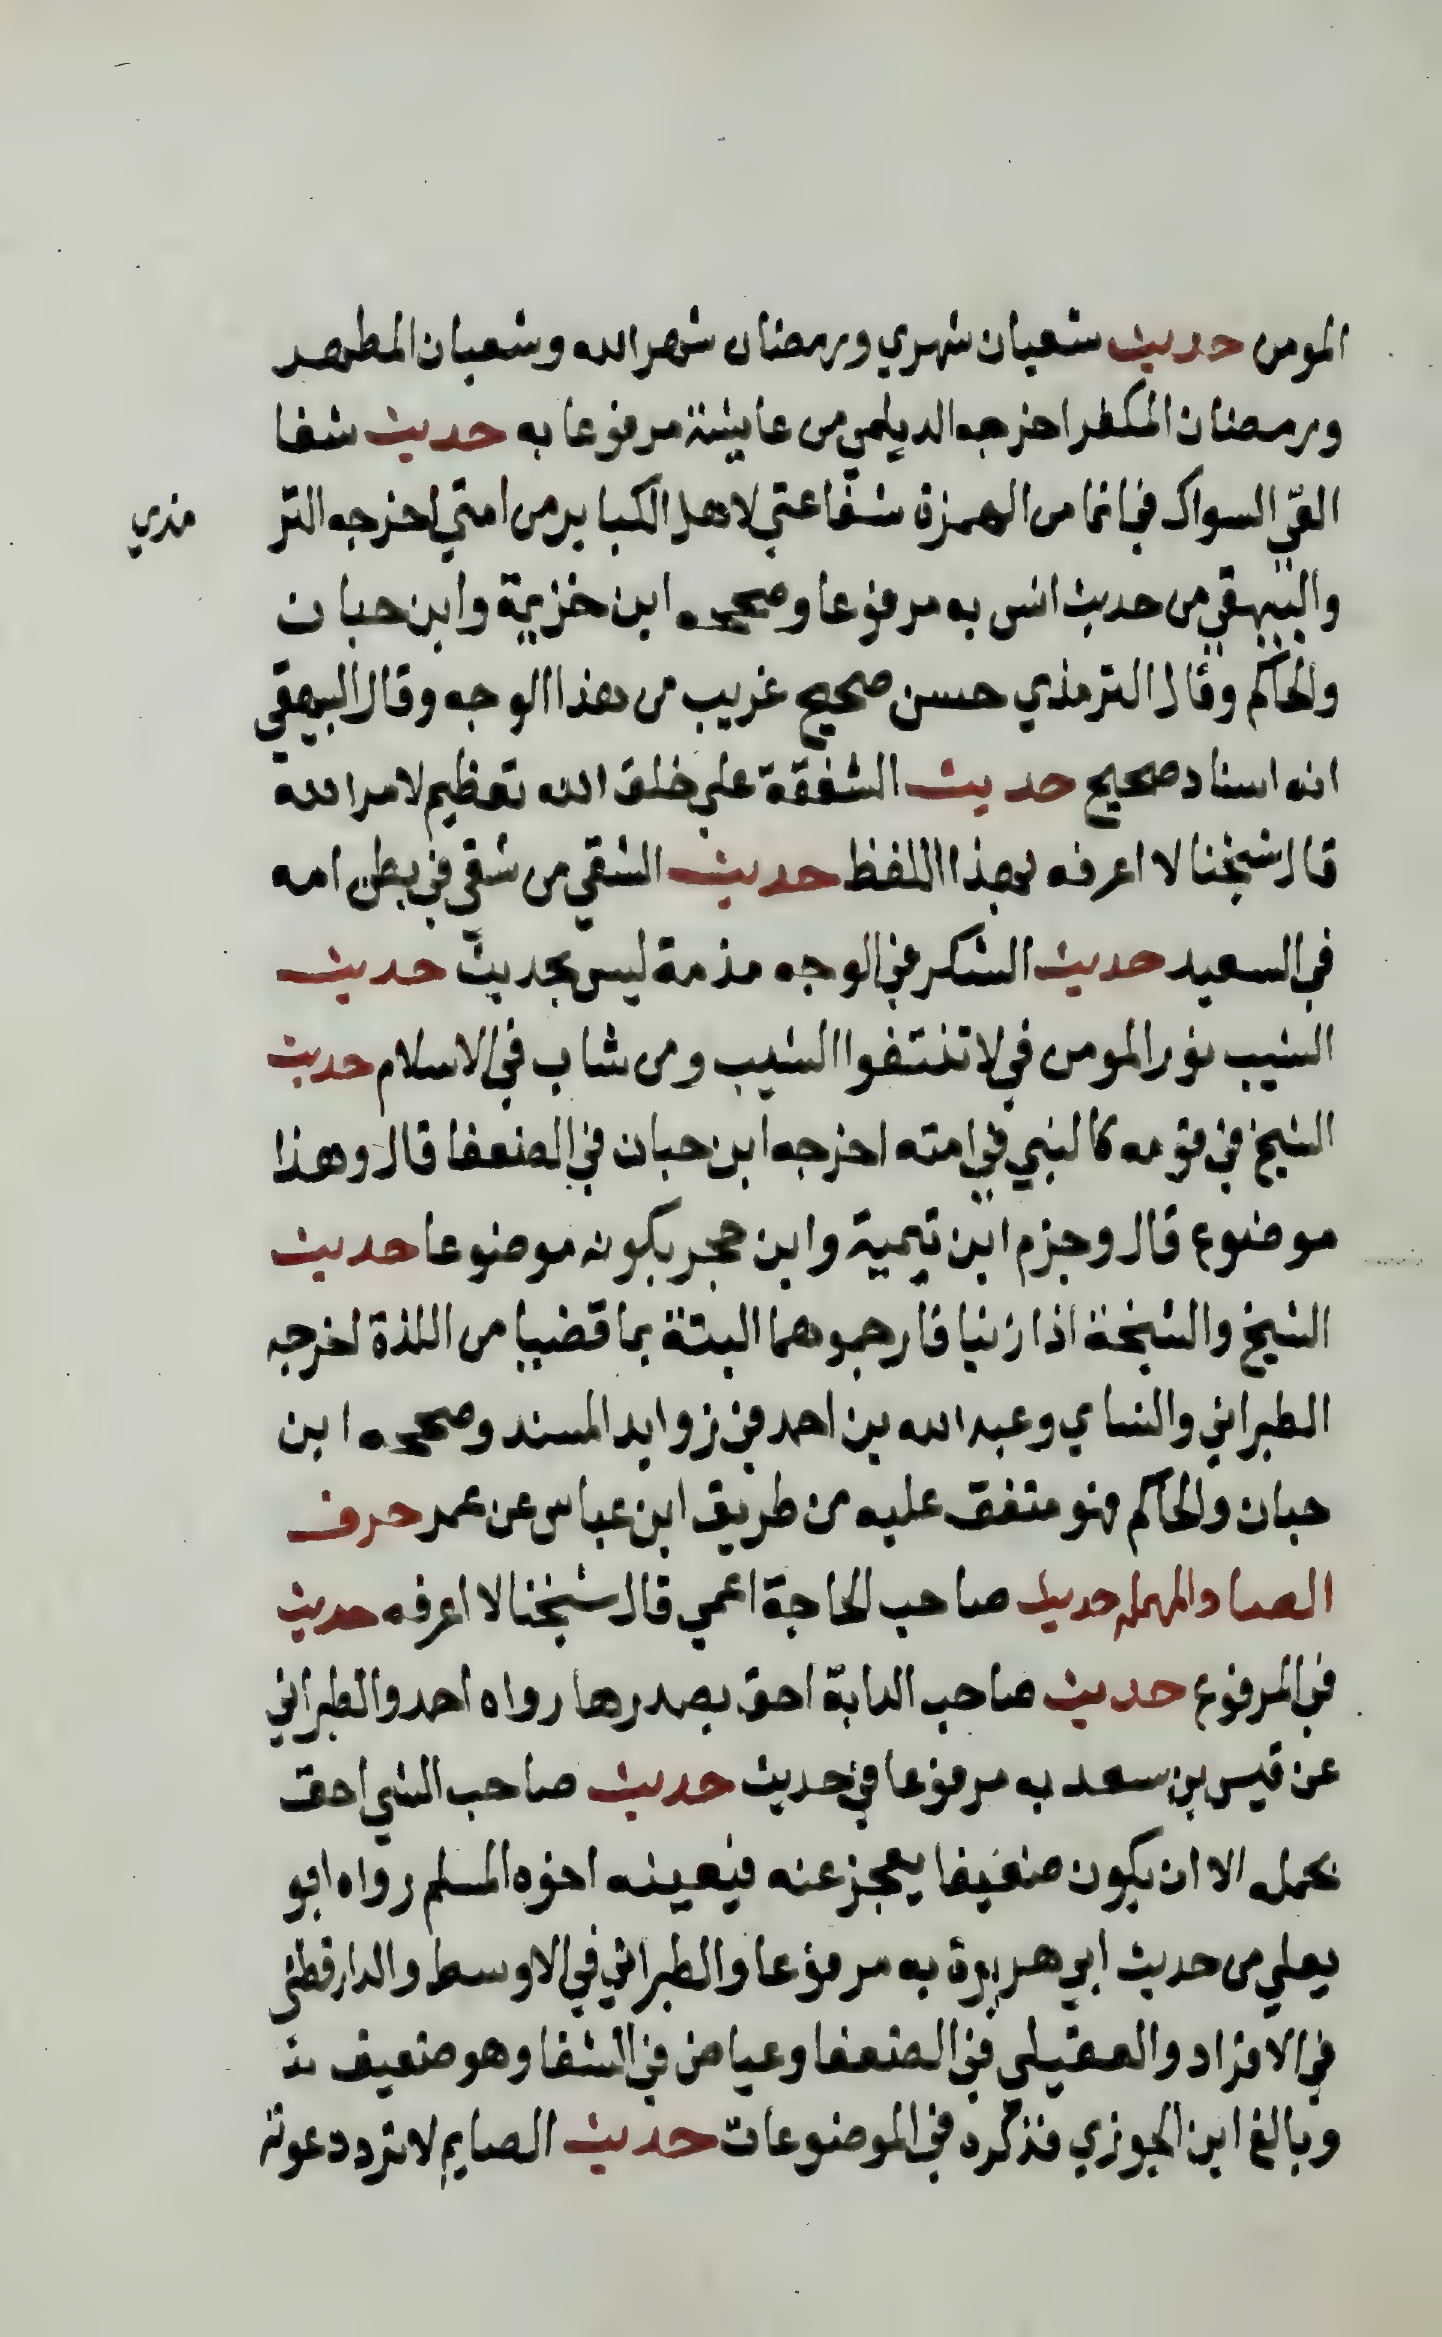 المومن حديث شعبان شهري ورمضان شهر الله وشعبان المطهر
ورمضان المكفر اخرجه الديلمي من عايشة مرفوعا به حديث شفا
العي السواك فيما نما من الهمزة شفاعتي لاهل الكباير من امتي اخرجه التر
مذي
والبيهقي من حديث انس به مرفوعا وصححه ابن خزيمة وابن حبان
والحاكم وقال الترمذي حسن صحيح غريب من هذا الوجه وقال البيهقي
انه اسناد صحيح حديث الشفقة علي خلق الله تعظيم لامر الله
قال شيخنا لا اعرفه بهذا اللفظ حديث الشقي من شقي في بطن امه
في السعيد حديث الشكر في الوجه مذمة ليس بحديث حديث
الشيب نور المومن في لا تنتفوا الشيب ومن شاب في الاسلام حديث
الشيخ في قومه كالنبي في امته اخرجه ابن حبان في الضعفا قال وهذا
موضوع قال وجزم ابن تيمية وابن حجر بكونه موضوعا حديث
الشيخ والشيخة اذا زنيا فارجموهما البتة بما قضيا من اللذة اخرجه
الطبراني والنساي وعبد الله بن احمد في زوايد المسند وصححه ابن
حبان والحاكم فهو متفق عليه من طريق ابن عباس عن عمر حرف
الصاد المهمله حديث صاحب الحاجة اعمي قال شيخنا لا اعرفه حديث
في المرفوع حديث صاحب الدابة احق بصدرها رواه احمد والطبراني
عن قيس بن سعد به مرفوعا في حديث حديث صاحب الشي احق
بحمله الا ان يكون ضعيفا يعجز عنه فيعينه اخوه المسلم رواه ابو
يعلي من حديث ابي هريرة به مرفوعا والطبراني في الاوسط والدارقطني
في الافراد والعقيلي في الضعفا وعياض في الشفا وهو ضعيف
وبالغ ابن الجوزي فذكره في الموضوعات حديث الصايم لا ترد دعوته